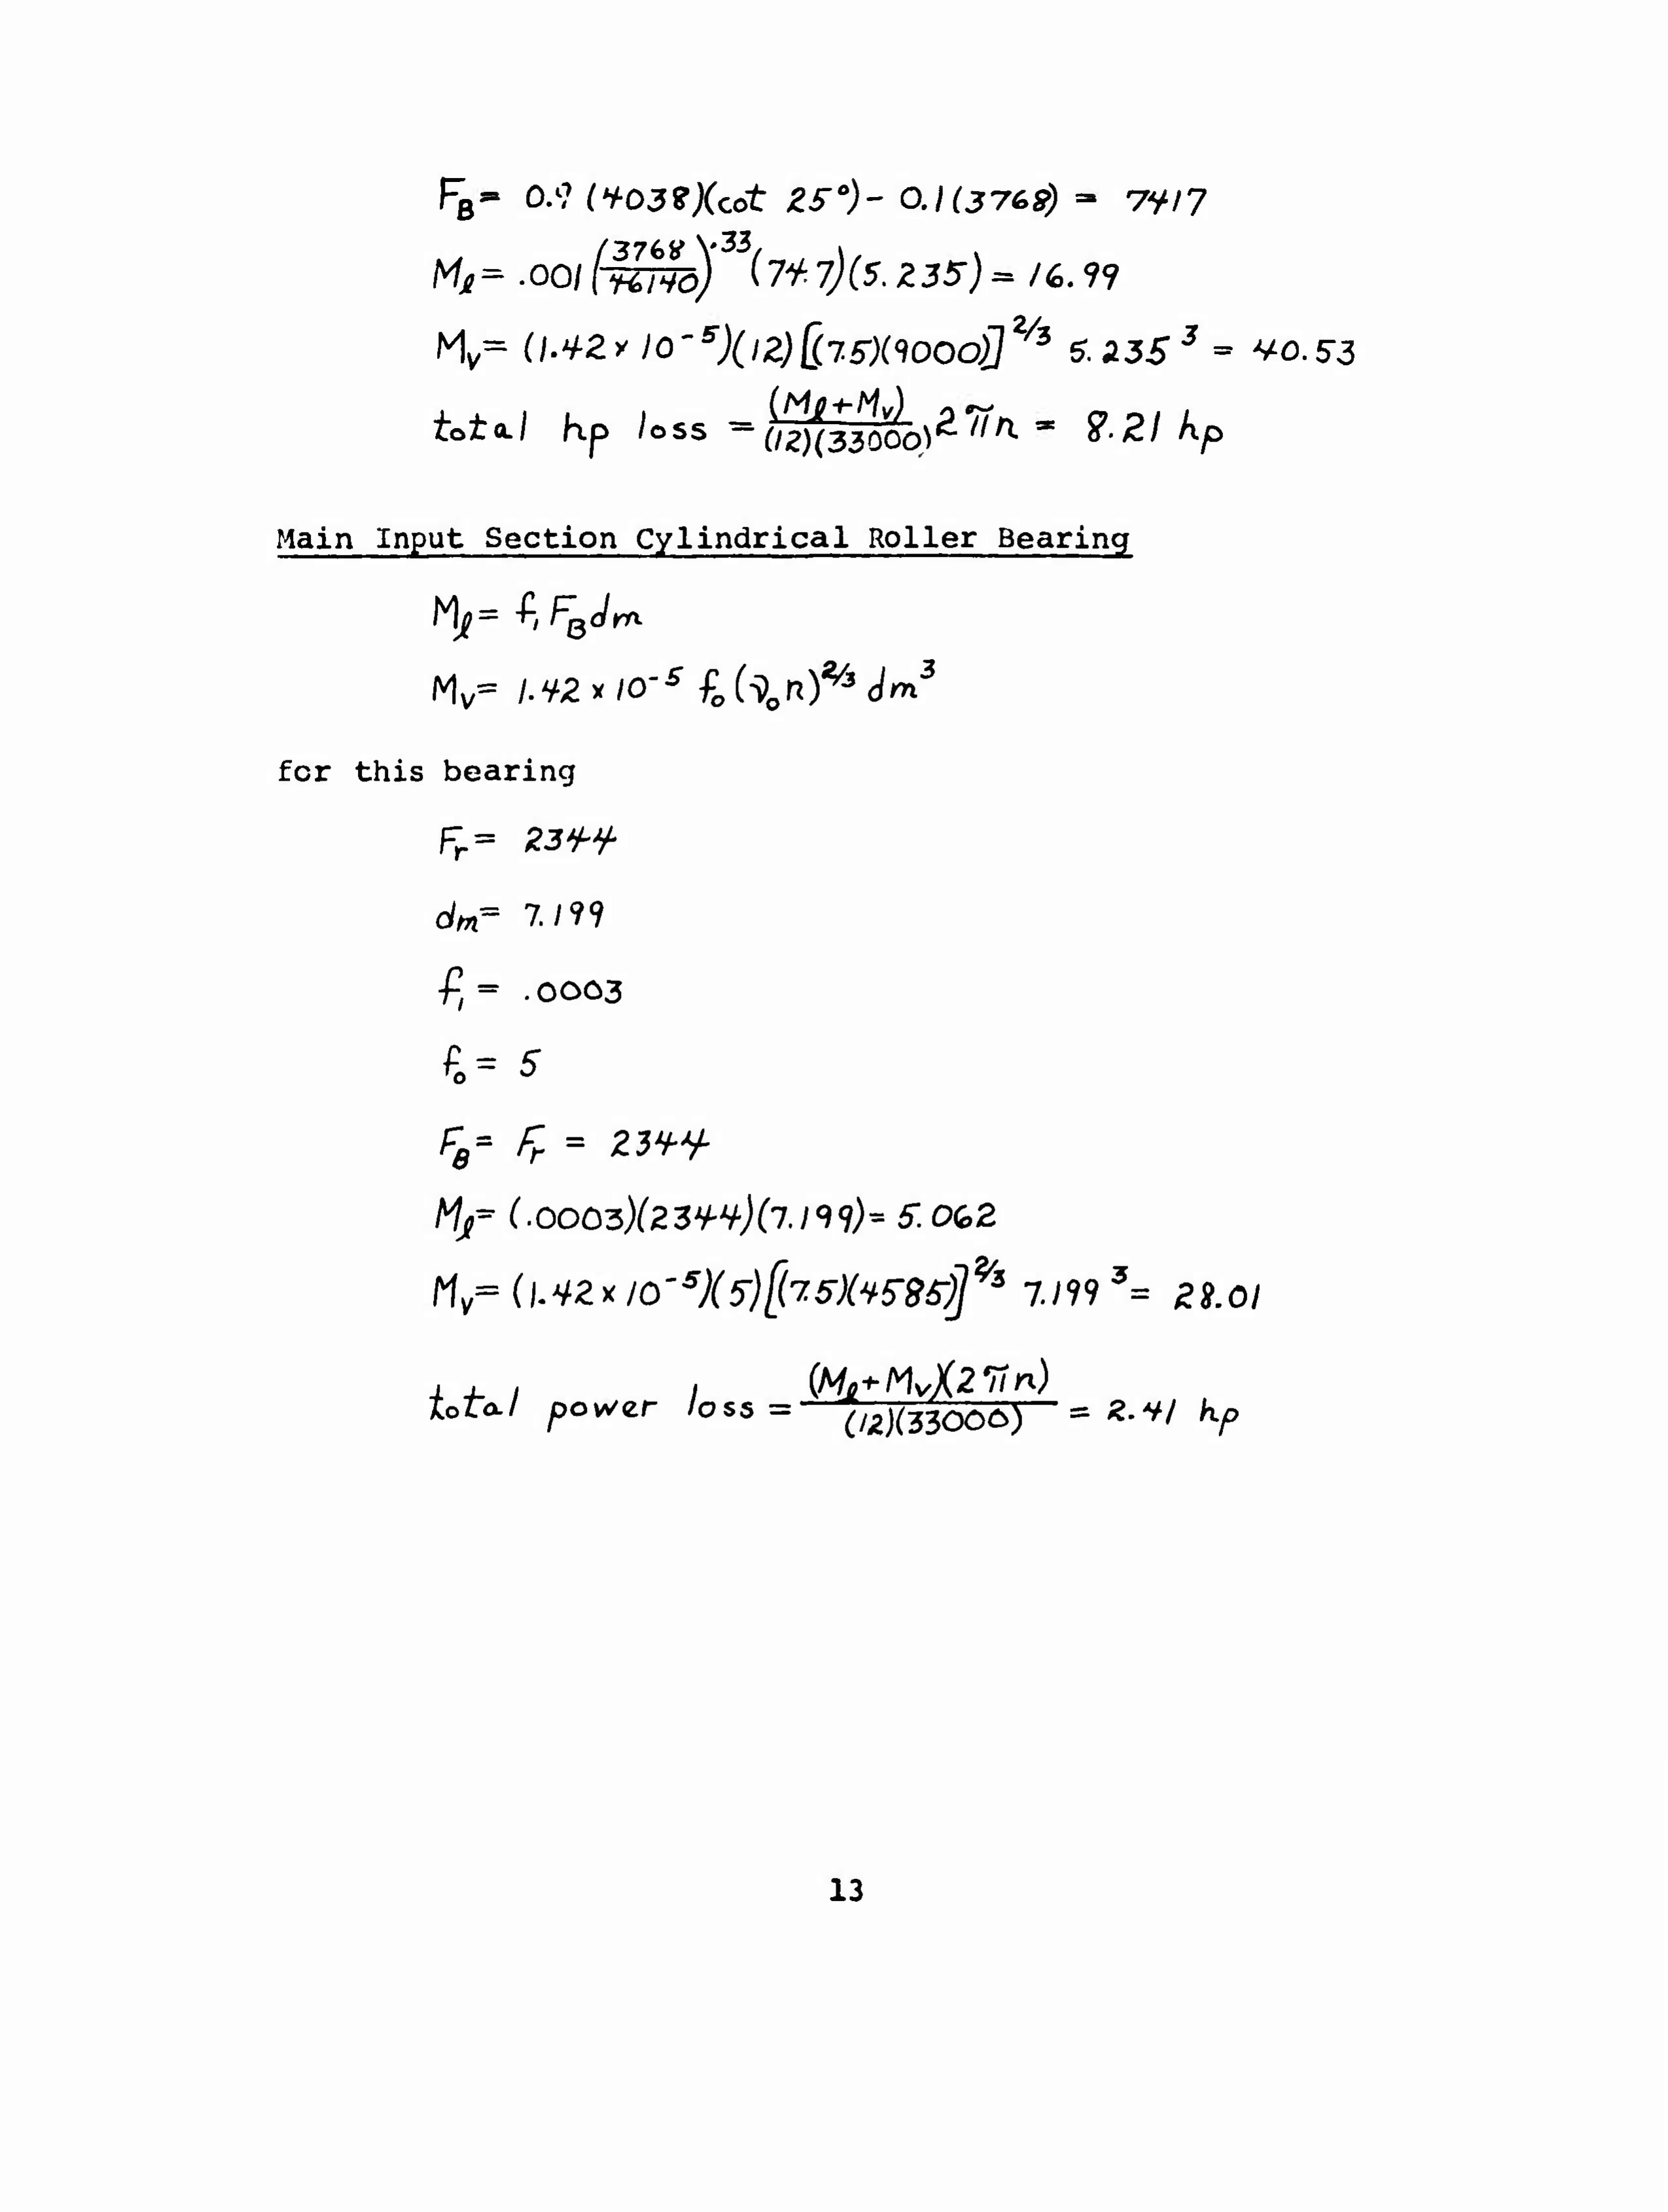 F_B = 0.9 (4038)(cot 25°) - 0.1 (3768) = 7417
M_ℓ = .001 (3768/46140)^.33 (74.7)(5.235) = 16.99
M_v = (1.42 x 10^-5)(12) [(7.5)(9000)]^2/3 5.235^3 = 40.53
total hp loss = (M_ℓ+M_v)/(12)(33000) 2πn = 8.21 hp
Main Input Section Cylindrical Roller Bearing
M_ℓ = f_1 F_B dm
M_v = 1.42 x 10^-5 f_o (ν_o n)^2/3 dm^3
for this bearing
F_r = 2344
dm = 7.199
f_1 = .0003
f_o = 5
F_B = F_r = 2344
M_ℓ = (.0003)(2344)(7.199) = 5.062
M_v = (1.42 x 10^-5)(5)[(7.5)(4585)]^2/3 7.199^3 = 28.01
total power loss = (M_ℓ+M_v)(2πn)/(12)(33000) = 2.41 hp
13